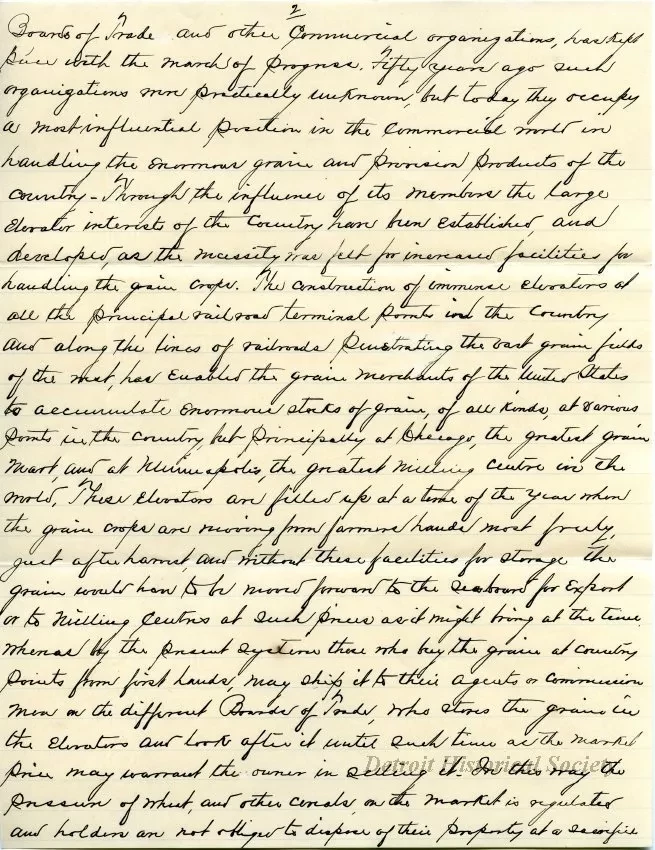 2
Boards of Trade and other Commercial organizations, has kept
pace with the march of progress. Fifty years ago such
organizations were practically unknown, but today they occupy
a most influential position in the Commercial world in
handling the enormous grain and provision products of the
country - Through the influence of its members the large
Elevator interests of the Country have been established, and
developed, as the necessity was felt for increased facilities for
handling the grain crops. The construction of immense elevators at
all the principal railroad terminal points in the Country
and along the lines of railroads penetrating the vast grain fields
of the west, has enabled the grain merchants of the United States
to accumulate enormous stocks of grain, of all kinds, at various
points in the country, but principally at Chicago, the greatest grain
mart, and at Minneapolis, the greatest milling centre in the
world. These elevators are filled up at a time of the year when
the grain crops are moving from farmers hands most freely,
just after harvest, and without these facilities for storage the
grain would have to be moved forward to the seaboard for Export
or to Milling Centres at such prices as it might bring at the time,
whereas by the present system those who buy the grain at country
points from first hands, may ship it to their agents or commission
men on the different Boards of Trade, who stores the grain in
the Elevators and look after it until such time as the market
price may warrant the owner in selling it. In this way the
pressure of wheat, and other cereals, on the market is regulated
and holders are not obliged to dispose of their property at a sacrifice
Detroit Historical Society